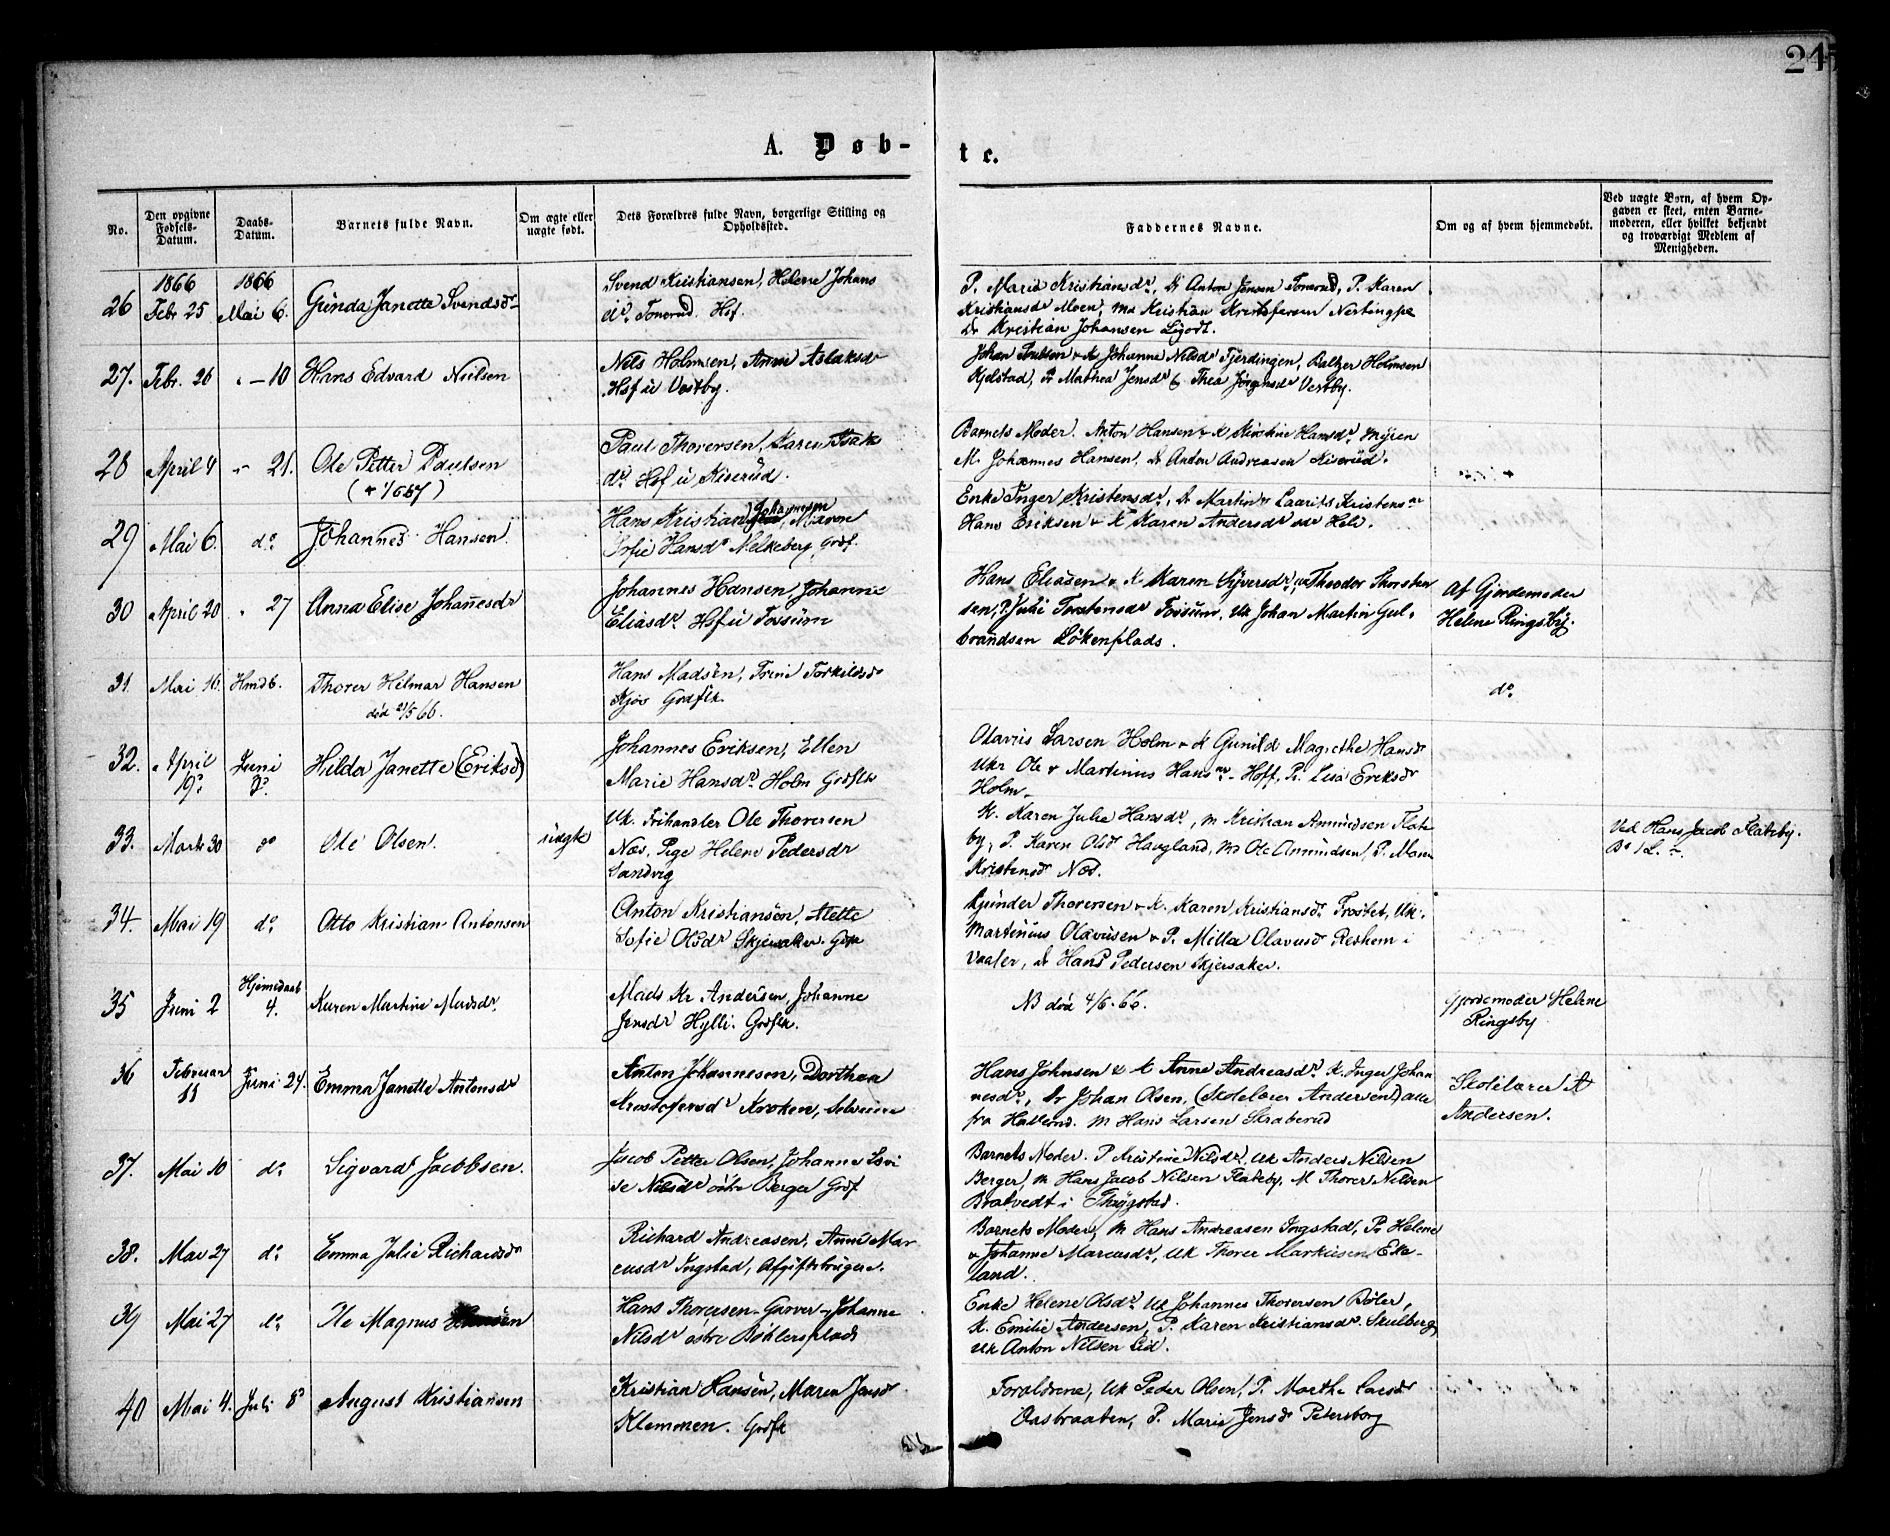 24
A. Døb-
te.
No.
Den opgivne Fødsels-Datum.
Daabs-Datum.
Barnets fulde Navn.
Om ægte eller uægte født.
Dets Forældres fulde Navn, borgerlige Stilling og Opholdssted.
Faddernes Navne.
Om og af hvem hjemmedøbt.
Ved uægte Børn, af hvem Op-
gaven er skeet, enten Barne-
moderen, eller hvilket bekjendt
og troværdigt Medlem af
Menigheden.
1866 1866
26 Febr 25 Mai 6. Gunda Janette Svendsdr
Svend Kristiansen, Helene Johans
dr. Tomerud. Hsf.
P. Marie Kristiansdr, Anton Jensen Tomerud, P. Karen
Kristiansdr Moen, Kristian Kristofersen
Kristian Johansen
27. Febr. 26 " - 10 Hans Edvard Nielsen
Nils Holmsen, Anne Aslaksdr
Hsf u Vestby.
Johan K Johanne Nilsdr Fjerdingen, Baltzer Holmsen
Kjelstad, Mathea Jensdr & Thea Jørgensdr Vestby.
28 April 4 " 21. Ole Petter Paulsen
Paul Thoresen, Karen Isak
dr Hsf u Kiserud.
Barnets Moder. Anton Hansen & K Kirstine Hansdr Myren
M. Johannes Hansen, Anton Andreasen Kiserud.
29 Mai 6. do. Johannes Hansen.
Hans Kristian Johannesen, Maren
Sofie Hansdr Melkeberg. Grdf.
Enke Inger Kristensdr, Martin & Lauritz Kristens
Hans Eriksen & K Karen Andersdr
30 April 20 " 27 Anna Elise Johanesdr
Johannes Hansen, Johanne
Eliasdr. Hsf u Fossum
Hans Eliasen & K Karen Syversdr, Theodor Thorsten
sen, P. Julie Torstensdr Fossum, Uk Johan Martin Gul-
brandsen Løkenplads.
Af Gjordemoder
Helene Ringsby.
31. Mai 16. Hmdb. Thorer Hilmar Hansen
død 21/5 66.
Hans Madsen, Trine Torkildsdr
Grdflk.
do.
32. April Juni Hilda Janette (Eriksdr)
19.
Johannes Eriksen, Ellen
Marie Hansdr. Holm Grdflk
Olavus Larsen Holm & K Gunild Magrethe Hansdr
Ukr Ole & Martinus Hans Hoff, P. Lisa Eriksdr
Holm.
33. Marts 30 do Ole Olsen. uægte
Uk. Frihandler Ole Thoresen
Næs, Pige Helene Pedersdr
Sandvig
K. Karen Julie Hansdr, M Kristian Amundsen Flate-
by, P. Karen Olsdr Haugland, Ole Amundsen, P. Maren
Kristensdr Næs.
Ved Hans Jacob Flateby.
34. Mai 19 do. Otto Kristian Antonsen
Anton Kristiansen, Mette
Sofie Olsdr Skjersaker.
Gunder Thoresen & K. Karen Kristiansdr. Frostet, Uk.
Martinius Olavusen & P. Milla Olavusdr i
Vaaler, Hans Pedersen Skjersaker.
35 Juni 2 Hjemedaab 4. Karen Martine Madsdr.
Mads Kr Andersen, Johanne
Jensdr Hylli. Grdflk.
NB død 4/6. 66.
Gjordemoder Helene
Ringsby
36 Februar 11 Juni 24. Emma Janette Antonsdr
Anton Johannesen, Dorthea
Kristofersdr Kroken,
Hans Johnsen & K Anne Andreasdr K. Inger Johan
nesdr, Johan Olsen, (Skolelærer Andersen) alle
fra M Hans Larsen Skraberud
Skolelærer A
Andersen.
37. Mai 10 do. Sigvard Jacobsen.
Jacob Petter Olsen, Johanne Lovi
se Nilsdr østre Berger Grdf
Barnets Moder. P Kristine Nilsdr, Uk Anders Nilsen
Berger, M Hans Jacob Nilsen Flateby, M Thorer Nilsen
Bratvedt i
38. Mai 27 do. Emma Julie Richardsdr
Richard Andreasen, Anne Mar
cusdr Ingstad, Afgiftsbruger.
Barnets Moder, M Hans Andreasen Ingstad, P. Helene
& Johanne Marcusdr, Uk Thorer Markusen Eke-
land.
39 Mai 27 do. Ole Magnus Hansen
Hans Thoresen Garver Johanne
Nilsdr østre Bøhlersplads
Enke Helene Olsdr. Uk Johannes Thoresen Bøler,
K. Emilie Andersen, P. Karen Kristiansdr Skulberg,
Uk Anton Nilsen Lid.
40 Mai 4. Juli 8 August Kristiansen
Kristian Hansen, Maren Jensdr
Klemmen. Grdflk
Forældrene, Uk Peder Olsen, P. Marthe Larsdr
Aasbraaten, P. Marie Jensdr Petersborg